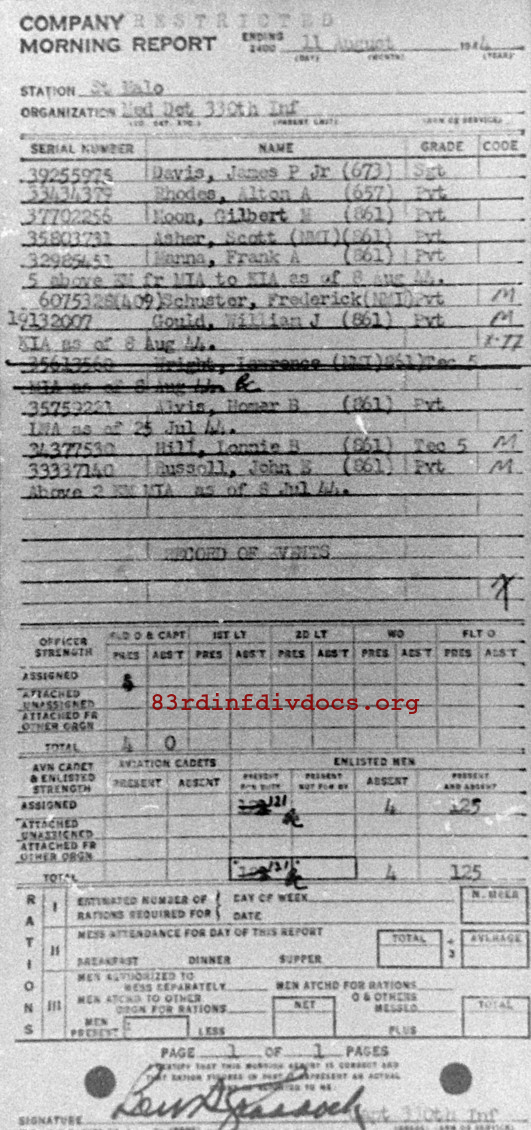 COMPANY RESTRICTED
MORNING REPORT ENDING 2400 11 August 1944
(DAY) (MONTH) (YEAR)
STATION St Malo
ORGANIZATION Med Det 330th Inf
SERIAL NUMBER NAME GRADE CODE
39255975 Davis, James P Jr (673) Sgt
33434379 Rhodes, Alton A (657) Pvt
37702256 Moon, Gilbert M (861) Pvt
35803731 Asher, Scott (NMI)(861) Pvt
32985451 Manna, Frank A (861) Pvt
5 above EM fr MIA to KIA as of 8 Aug 44.
6075328(409)Schuster, Frederick(NMI)Pvt M
19132007 Gould, William J (861) Pvt M
KIA as of 8 Aug 44.
35613560 Wright, Lawrence (NMI)861)Tec 5
MIA as of 8 Aug 44.
35759221 Alvis, Homer B (861) Pvt
LWA as of 25 Jul 44.
34377530 Hill, Lonnie B (861) Tec 5 M
33337140 Russell, John E (861) Pvt M
Above 2 EM MIA as of 8 Jul 44.
RECORD OF EVENTS
OFFICER STRENGTH FLD O & CAPT 1ST LT 2D LT WO FLT O
PRES ABS'T PRES ABS'T PRES ABS'T PRES ABS'T PRES ABS'T
ASSIGNED
ATTACHED UNASSIGNED
ATTACHED FR OTHER ORGN
TOTAL 4 0
83rdinfdivdocs.org
AVN CADET & ENLISTED STRENGTH AVIATION CADETS ENLISTED MEN
PRESENT ABSENT PRESENT FOR DUTY PRESENT NOT FOR DY ABSENT PRESENT AND ABSENT
ASSIGNED 121 4 125
ATTACHED UNASSIGNED
ATTACHED FR OTHER ORGN
TOTAL 121 4 125
RATIONS
I ESTIMATED NUMBER OF RATIONS REQUIRED FOR DAY OF WEEK DATE NUMBER
II MESS ATTENDANCE FOR DAY OF THIS REPORT TOTAL ÷ 3 AVERAGE
BREAKFAST DINNER SUPPER
III MEN AUTHORIZED TO MESS SEPARATELY MEN ATCHD FOR RATIONS
MEN ATCHD TO OTHER ORGN FOR RATIONS NET O & OTHERS MESSED TOTAL
MEN PRESENT LESS PLUS
PAGE 1 OF 1 PAGES
I CERTIFY THAT THIS MORNING REPORT IS CORRECT AND
THAT RATION FIGURES IN PART REPRESENT AN ACTUAL
REPORTED TO ME.
SIGNATURE Capt 330th Inf